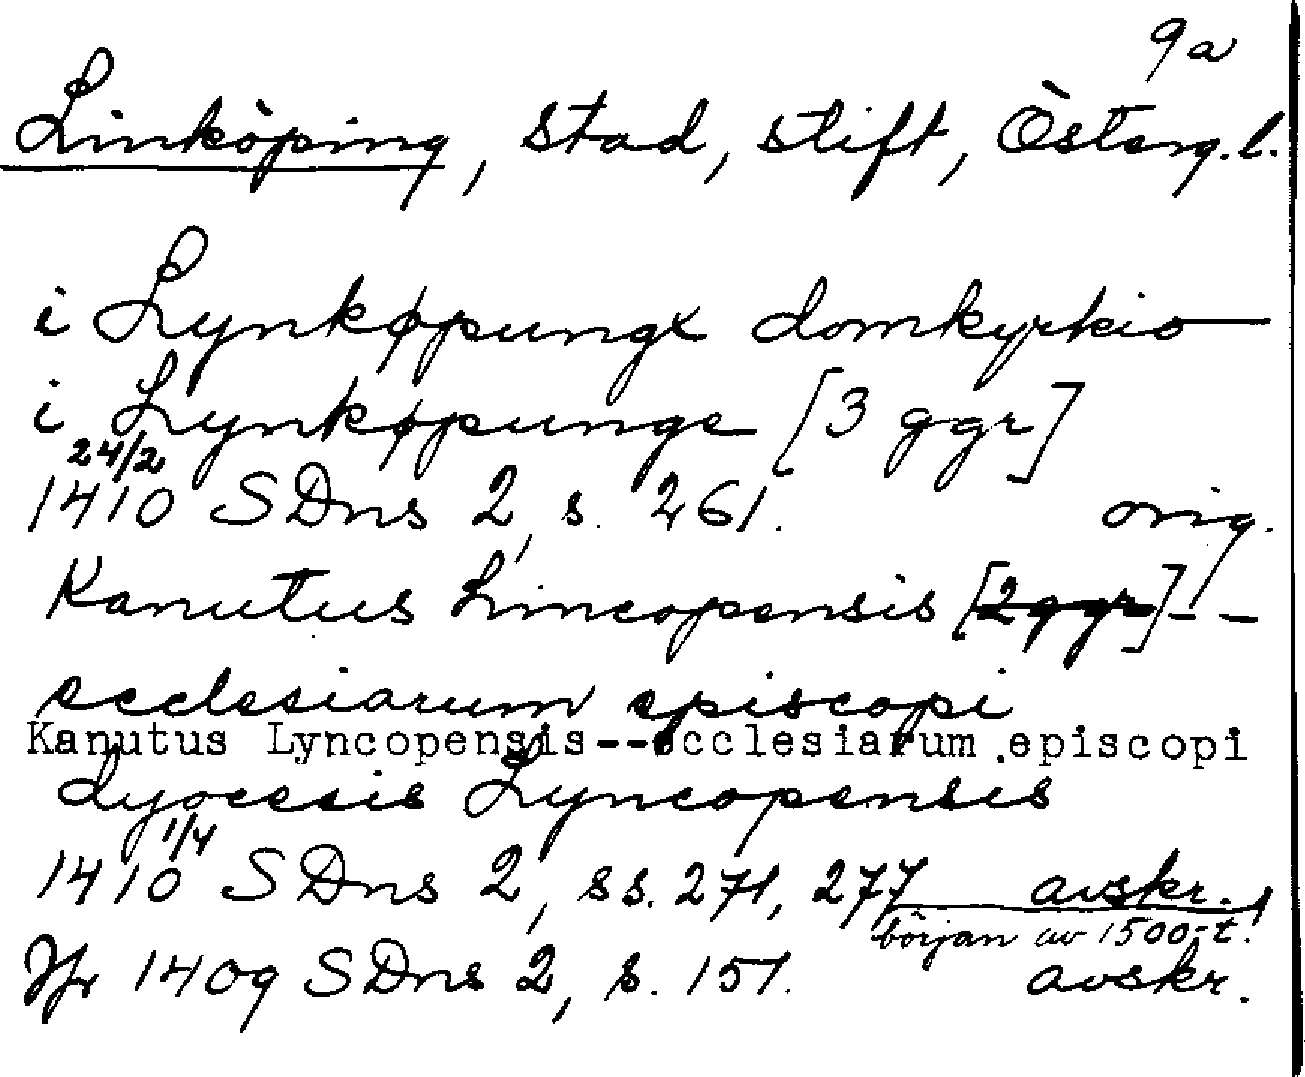 9a
Linköping, stad, stift, Österg.l.
i Lynkøpungx domkyrkio
i Lynkøpunge [3 ggr]
24/2
1410 SDns 2, s. 261. orig.
Kanutus Lincopensis [2 ggr] - -
ecclesiarum episcopi
Kanutus Lyncopensis--ecclesiarum episcopi
dyocesis Lyncopensis
1/4
1410 SDns 2, ss. 271, 277 avskr.,
början av 1500-t.
Jfr 1409 SDns 2, s. 151. avskr.